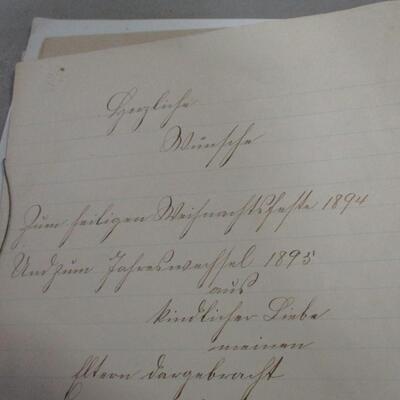 Herzliche
Wünsche
Zum heiligen Weihnachtsfeste 1894
Und zum Jahreswechsel 1895
aus
kindlicher Liebe
meinen
Eltern dargebracht